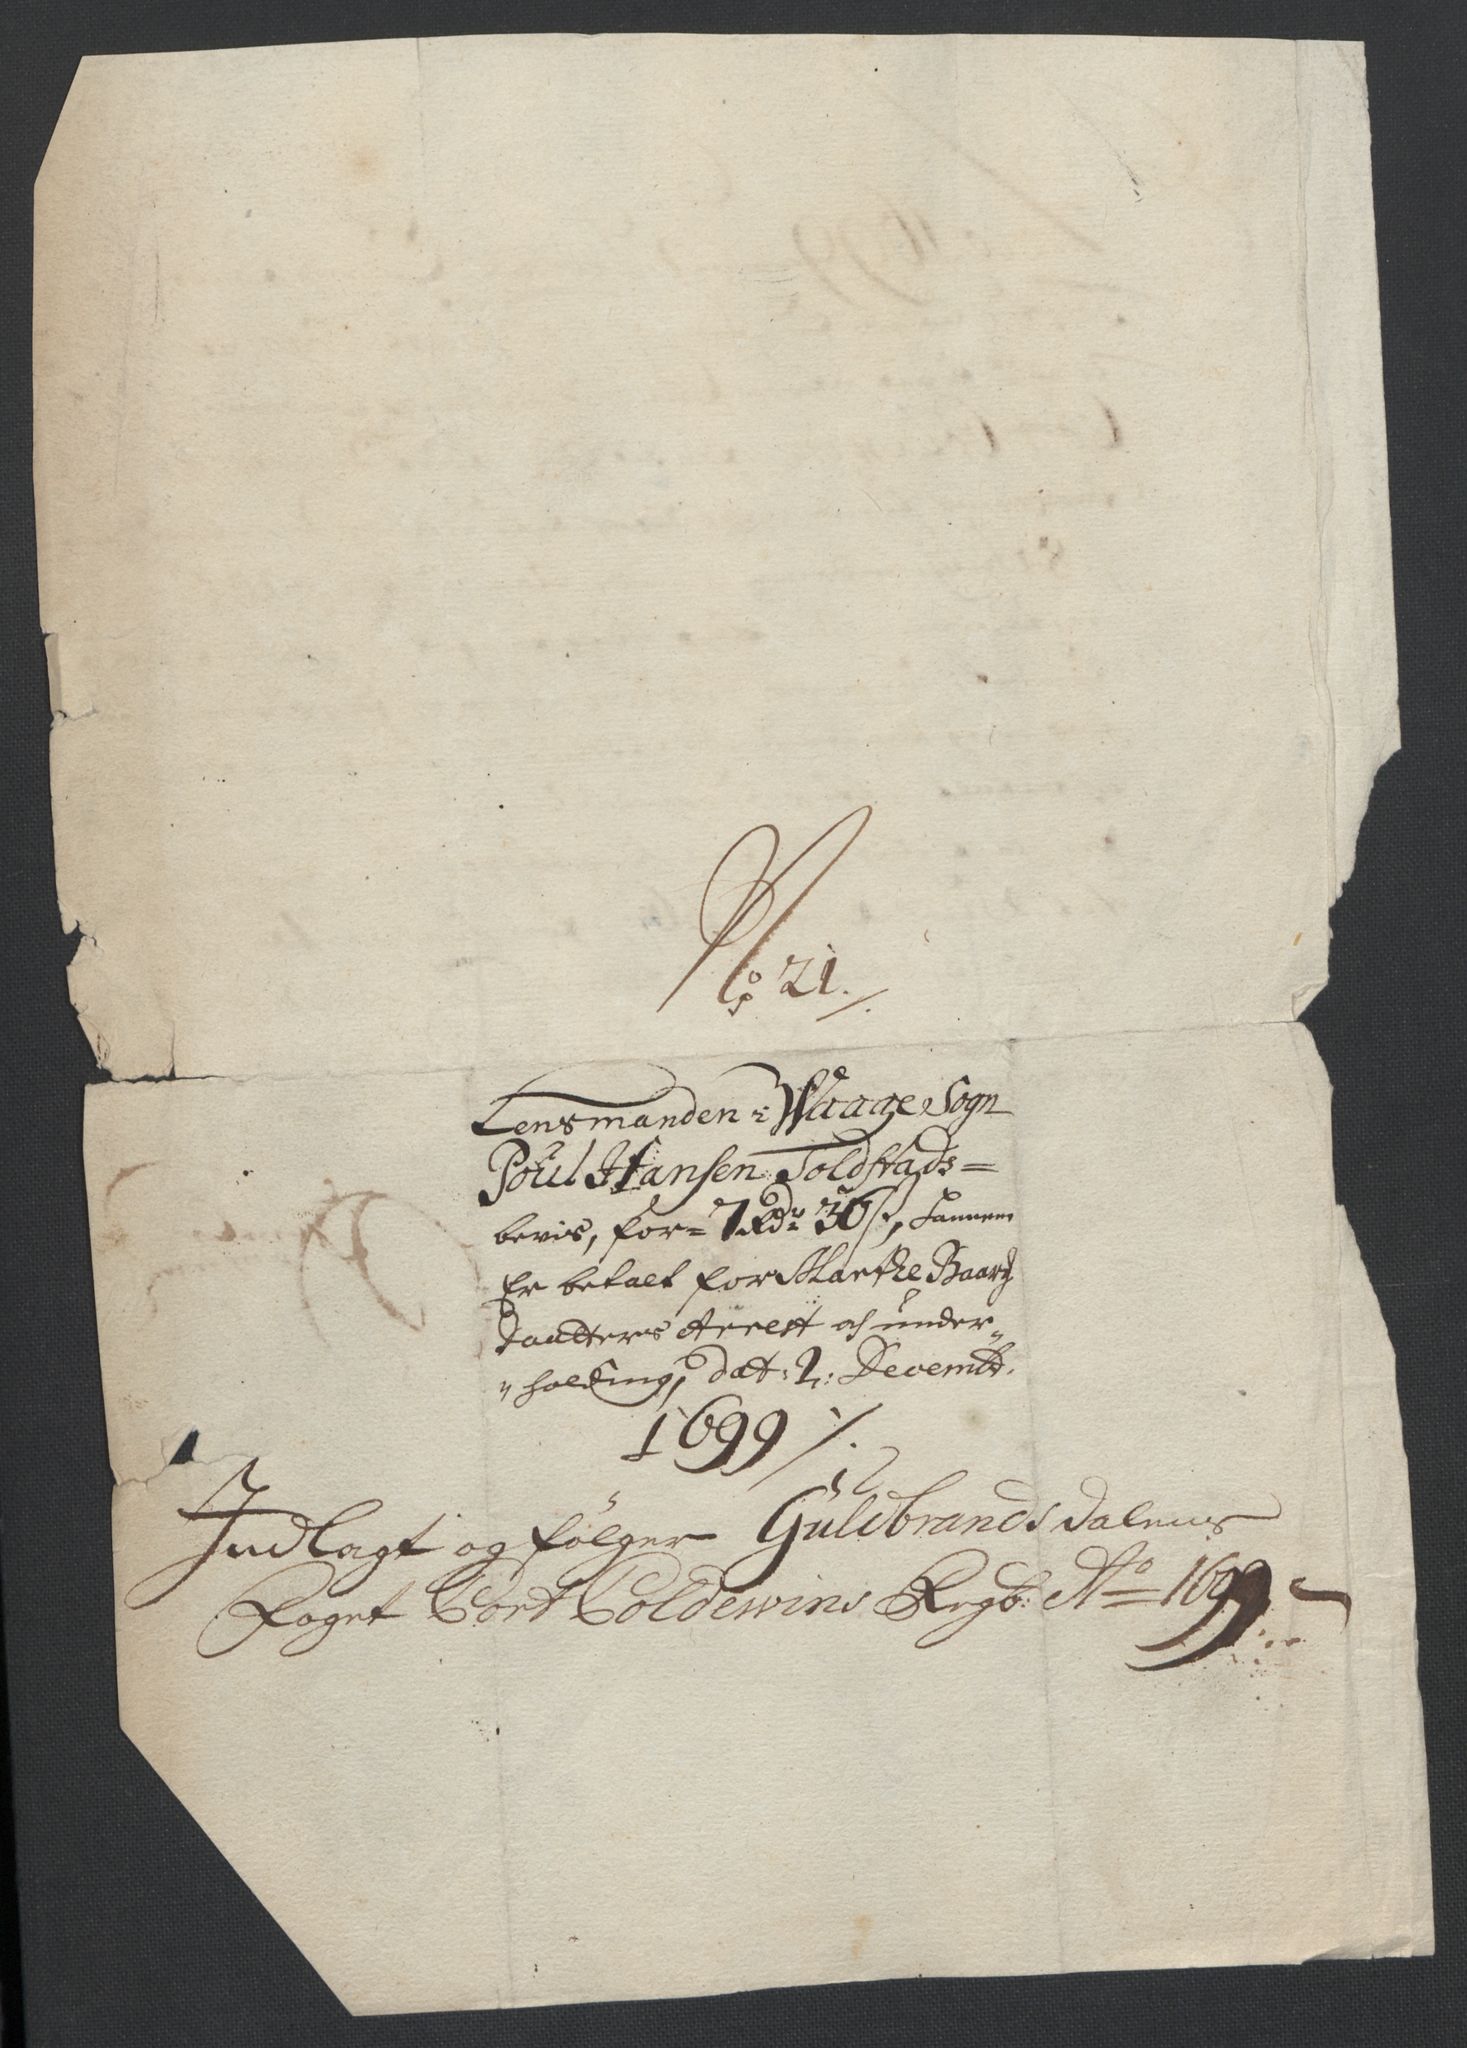 No 21./.
Lensmanden i Waage Sogn
Poul Hansen Toldstads=
bevis, for= 7 Rdr 36 s, hannem
Er betalt for Marthe Baarz
daatters Arrest och under„
„holding, dat: 2: Decembr.
1699 /.
Indlagt og følger Guldbrandsdalens
Foget Cort Coldewins Regb: Ao 1699